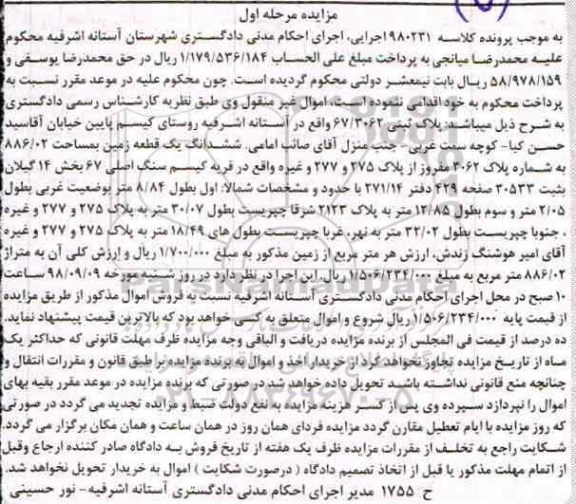 مزایده مرحله اول
به موجب پرونده کلاسه ۹۸۰۲۳۱اجرایی، اجرای احکام مدنی دادگستری شهرستان آستانه اشرفیه محکوم
علیه محمدرضا میانجی به پرداخت مبلغ علی الحساب ۱/۱۷۹/۵۳۶/۱۸۴ ریال در حق محمدرضا یوسفی و
۵۸/۹۷۸/۱۵۹ ریال بابت نیمعشر دولتی محکوم گردیده است. چون محکوم علیه در موعد مقرر نسبت به
پرداخت محکوم به خود اقدامی ننموده است، اموال غیر منقول وی طبق نظریه کارشناس رسمی دادگستری
به شرح ذیل میباشد: پلاک ثبتی ۶۷/۳۰۶۲ واقع در آستانه اشرفیه روستای کیسم پایین خیابان آقاسید
حسن کیا- کوچه سمت غربی- جنب منزل آقای صائب امامی. ششدانگ یک قطعه زمین بمساحت ۸۸۶/۰۲
به شماره پلاک ۳۰۶۲ مفروز از پلاک ۲۷۵ و ۲۷۷ و غیره واقع در قریه کیسم سنگ اصلی ۶۷ بخش ۱۴ گیلان
بثبت ۳۰۵۳۳ صفحه ۴۲۹ دفتر ۲۷۱/۱۴ با حدود و مشخصات شمالا: اول بطول ۸/۸۴ متر بوضعیت غربی بطول
۲/۰۵ متر و سوم بطول ۱۲/۸۵ متر به پلاک ۲۱۲۳ شرقا چپریست بطول ۳۰/۰۷ متر به پلاک ۲۷۵ و ۲۷۷ و غیره
، جنوبا چپریست بطول ۳۲/۰۲ متر به نهر، غربا چپریست بطول های ۱۸/۴۹ متر به پلاک ۲۷۵ و ۲۷۷ و غیره
آقای امیر هوشنگ زندش، ارزش هر متر مربع از زمین مذکور به مبلغ ۱/۷۰۰/۰۰۰ ریال و ارزش کلی آن به متراژ
۸۸۶/۰۲ متر مربع به مبلغ ۱/۵۰۶/۲۳۴/۰۰۰ ریال. این اجرا در نظر دارد در روز شنبه مورخه ۹۸/۰۹/۰۹ ساعت
۱۰ صبح در محل اجرای احکام مدنی دادگستری آستانه اشرفیه نسبت به فروش اموال مذکور از طریق مزایده
از قیمت پایه ۱/۵۰۶/۲۳۴/۰۰۰ ریال شروع و اموال متعلق به کسی خواهد بود که بالاترین قیمت پیشنهاد نماید.
ده درصد از قیمت فی المجلس از برنده مزایده دریافت و الباقی وجه مزایده ظرف مهلت قانونی که حداکثر یک
ماه از تاریخ مزایده تجاوز نخواهد کرد از خریدار اخذ و اموال به برنده مزایده برابر طبق قانون و مقررات انتقال و
چنانچه منع قانونی نداشته باشد تحویل داده خواهد شد در صورتی که برنده مزایده در موعد مقرر بقیه بهای
اموال را نپردازد سپرده وی پس از کسر هزینه مزایده به نفع دولت ضبط و مزایده تجدید می گردد در صورتی
که روز مزایده با ایام تعطیل مقارن گردد مزایده فردای همان روز در همان ساعت و همان مکان برگزار می گردد.
شکایت راجع به تخلف از مقررات مزایده ظرف یک هفته از تاریخ فروش به دادگاه صادر کننده ارجاع وقبل
از اتمام مهلت مذکور یا قبل از اتخاذ تصمیم دادگاه ( درصورت شکایت ) اموال به خریدار تحویل نخواهد شد.
ح ۱۷۵۵ مدیر اجرای احکام مدنی دادگستری آستانه اشرفیه- نور حسینی